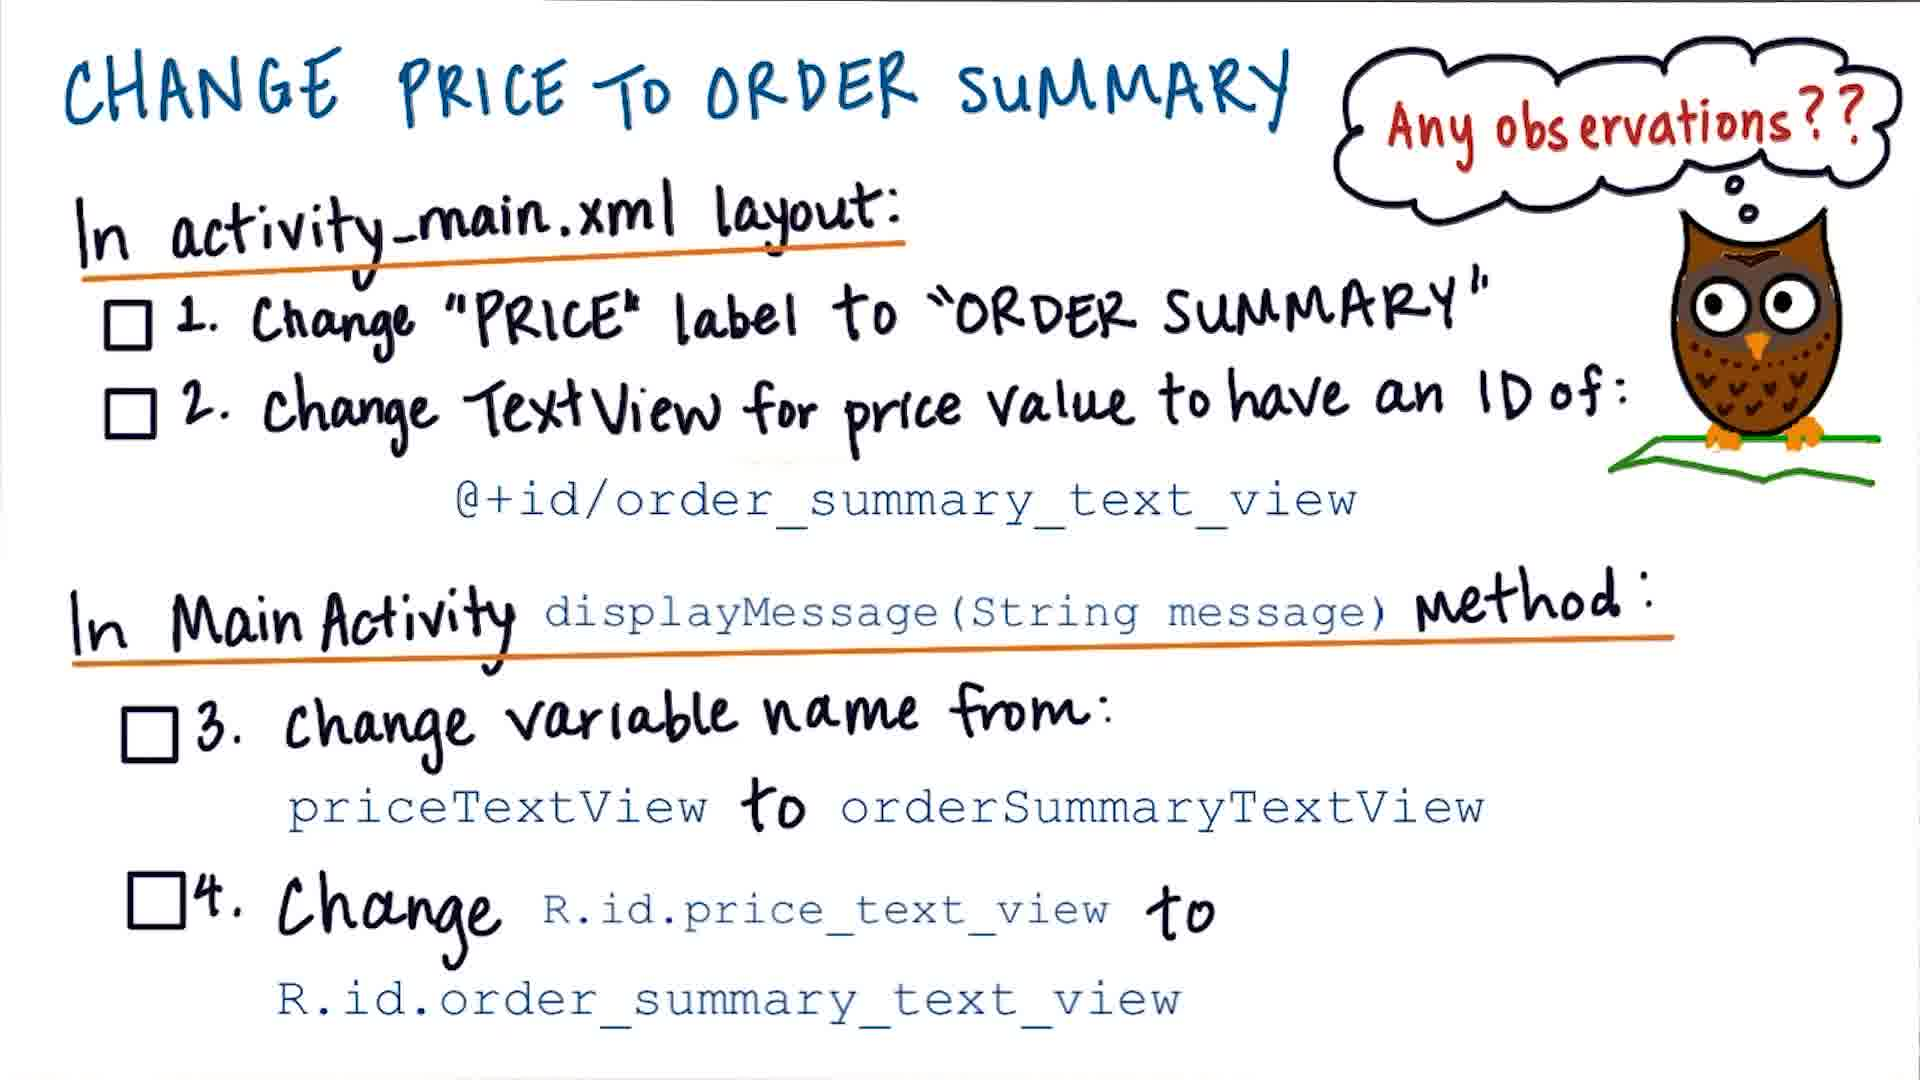 CHANGE PRICE TO ORDER SUMMARY
Any observations??
In activity_main.xml layout:
1. Change "PRICE" label to "ORDER SUMMARY"
2. Change TextView for price value to have an ID of:
@+id/order_summary_text_view
In MainActivity displayMessage(String message) method:
3. Change variable name from:
priceTextView to orderSummaryTextView
4. Change R.id.price_text_view to
R.id.order_summary_text_view